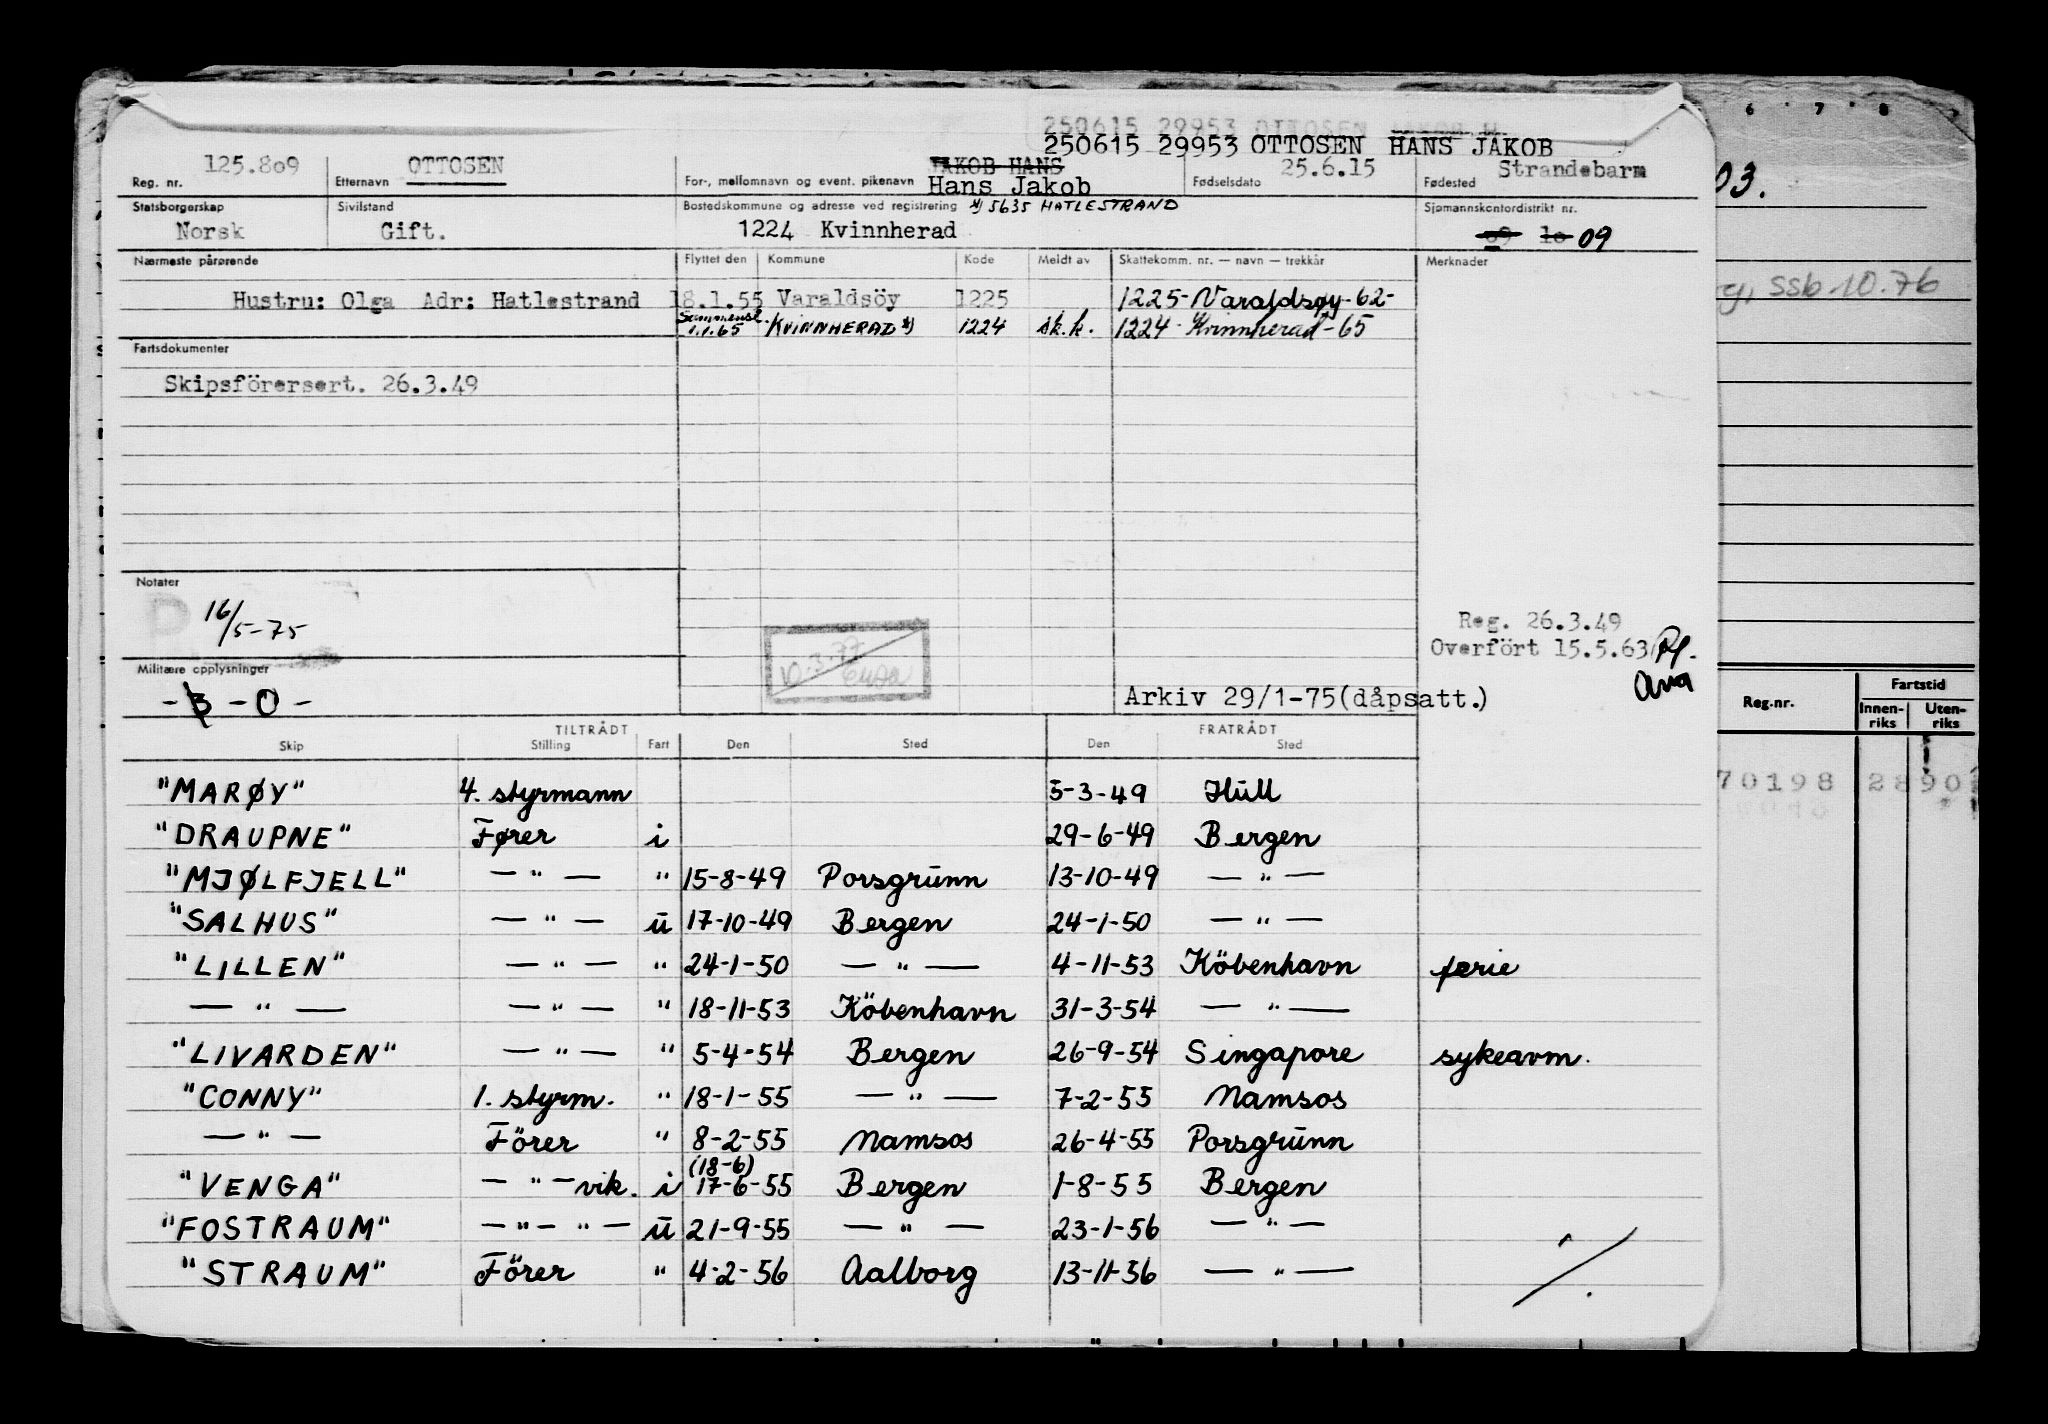 250615 29953 OTTOSEN HANS JAKOB
Reg. nr. 125.809 Etternavn OTTOSEN For-, mellomnavn og event. pikenavn JAKOB HANS Hans Jakob Fødselsdato 25.6.15 Fødested Strandebarm
Statsborgerskap Sivilstand Bostedskommune og adresse ved registrering x) 5635 HATLESTRAND Sjømannskontordistrikt nr.
Norsk Gift. 1224 Kvinnherad 09 10 09
Nærmeste pårørende Flyttet den Kommune Kode Meldt av Skattekomm. nr. — navn — trekkår Merknader
Hustru: Olga Adr: Hatlestrand 18.1.55 Varaldsöy 1225 1225-Varaldsøy-62-
Sammensl. 1.1.65 KVINNHERAD x) 1224 sk.k. 1224 - Kvinnherad-65
Fartsdokumenter
Skipsförersert. 26.3.49
Notater
D 16/5-75
Reg. 26.3.49
Overfört 15.5.63
10.3.77
Militære opplysninger
-B-O-
Arkiv 29/1-75(dåpsatt.)
TILTRÅDT FRATRÅDT
Skip Stilling Fart Den Sted Den Sted
"MARØY" 4. styrmann 5-3-49 Hull
"DRAUPNE" Fører i 29-6-49 Bergen
"MJØLFJELL" — " — " 15-8-49 Porsgrunn 13-10-49 — " —
"SALHUS" — " — u 17-10-49 Bergen 24-1-50 — " —
"LILLEN" — " — " 24-1-50 — " — 4-11-53 Köbenhavn ferie
— " — — " — " 18-11-53 Köbenhavn 31-3-54 — " —
"LIVARDEN" — " — " 5-4-54 Bergen 26-9-54 Singapore sykeavm.
"CONNY" 1. styrm. " 18-1-55 — " — 7-2-55 Namsos
— " — Förer " 8-2-55 Namsos 26-4-55 Porsgrunn
"VENGA" — " — vik. i (18-6) 17-6-55 Bergen 1-8-55 Bergen
"FOSTRAUM" — " — " — u 21-9-55 — " — 23-1-56 — " —
"STRAUM" Förer " 4-2-56 Aalborg 13-11-56 — " —
6 7 8
03.
ssb.10.76
Reg.nr. Fartstid
Innen-riks Uten-riks
70198 2890